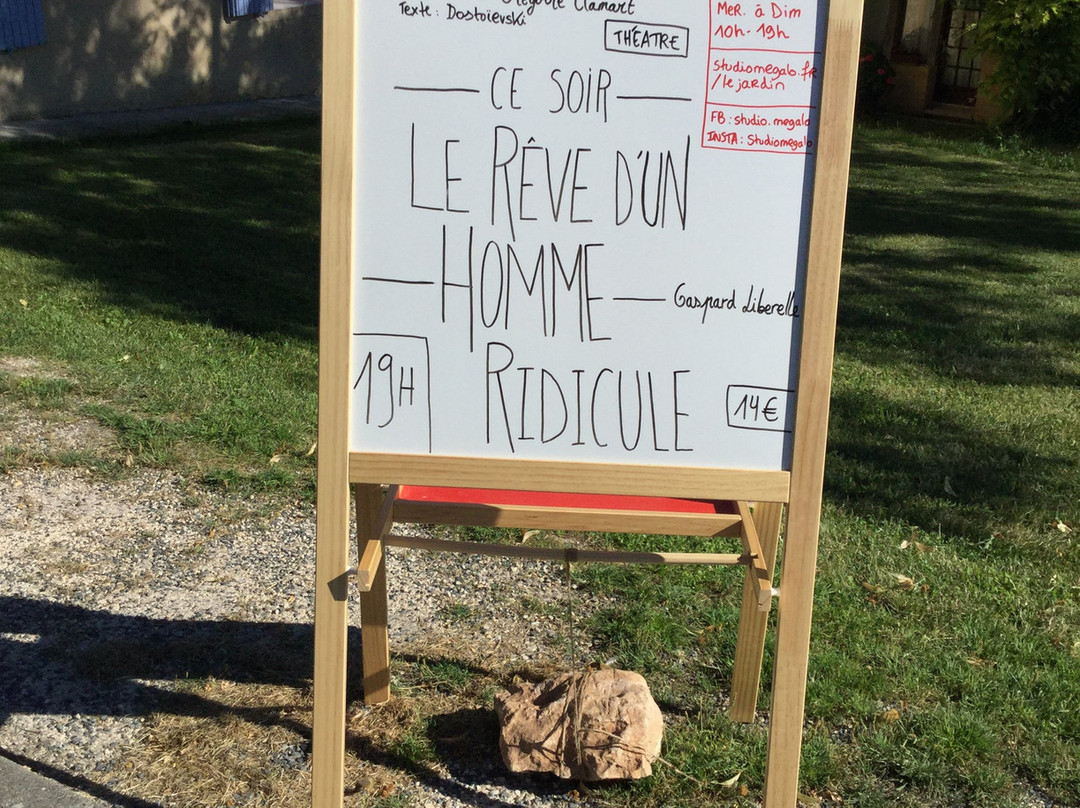 Clamart
Texte : Dostoïevski
THÉATRE
MER. à Dim
10h - 19h
studiomegalo.fr
/lejardin
FB : studio.megalo
INSTA : Studiomegalo
CE SOIR
LE RÊVE D'UN
HOMME
Gaspard Liberelle
RIDICULE
19H
14€